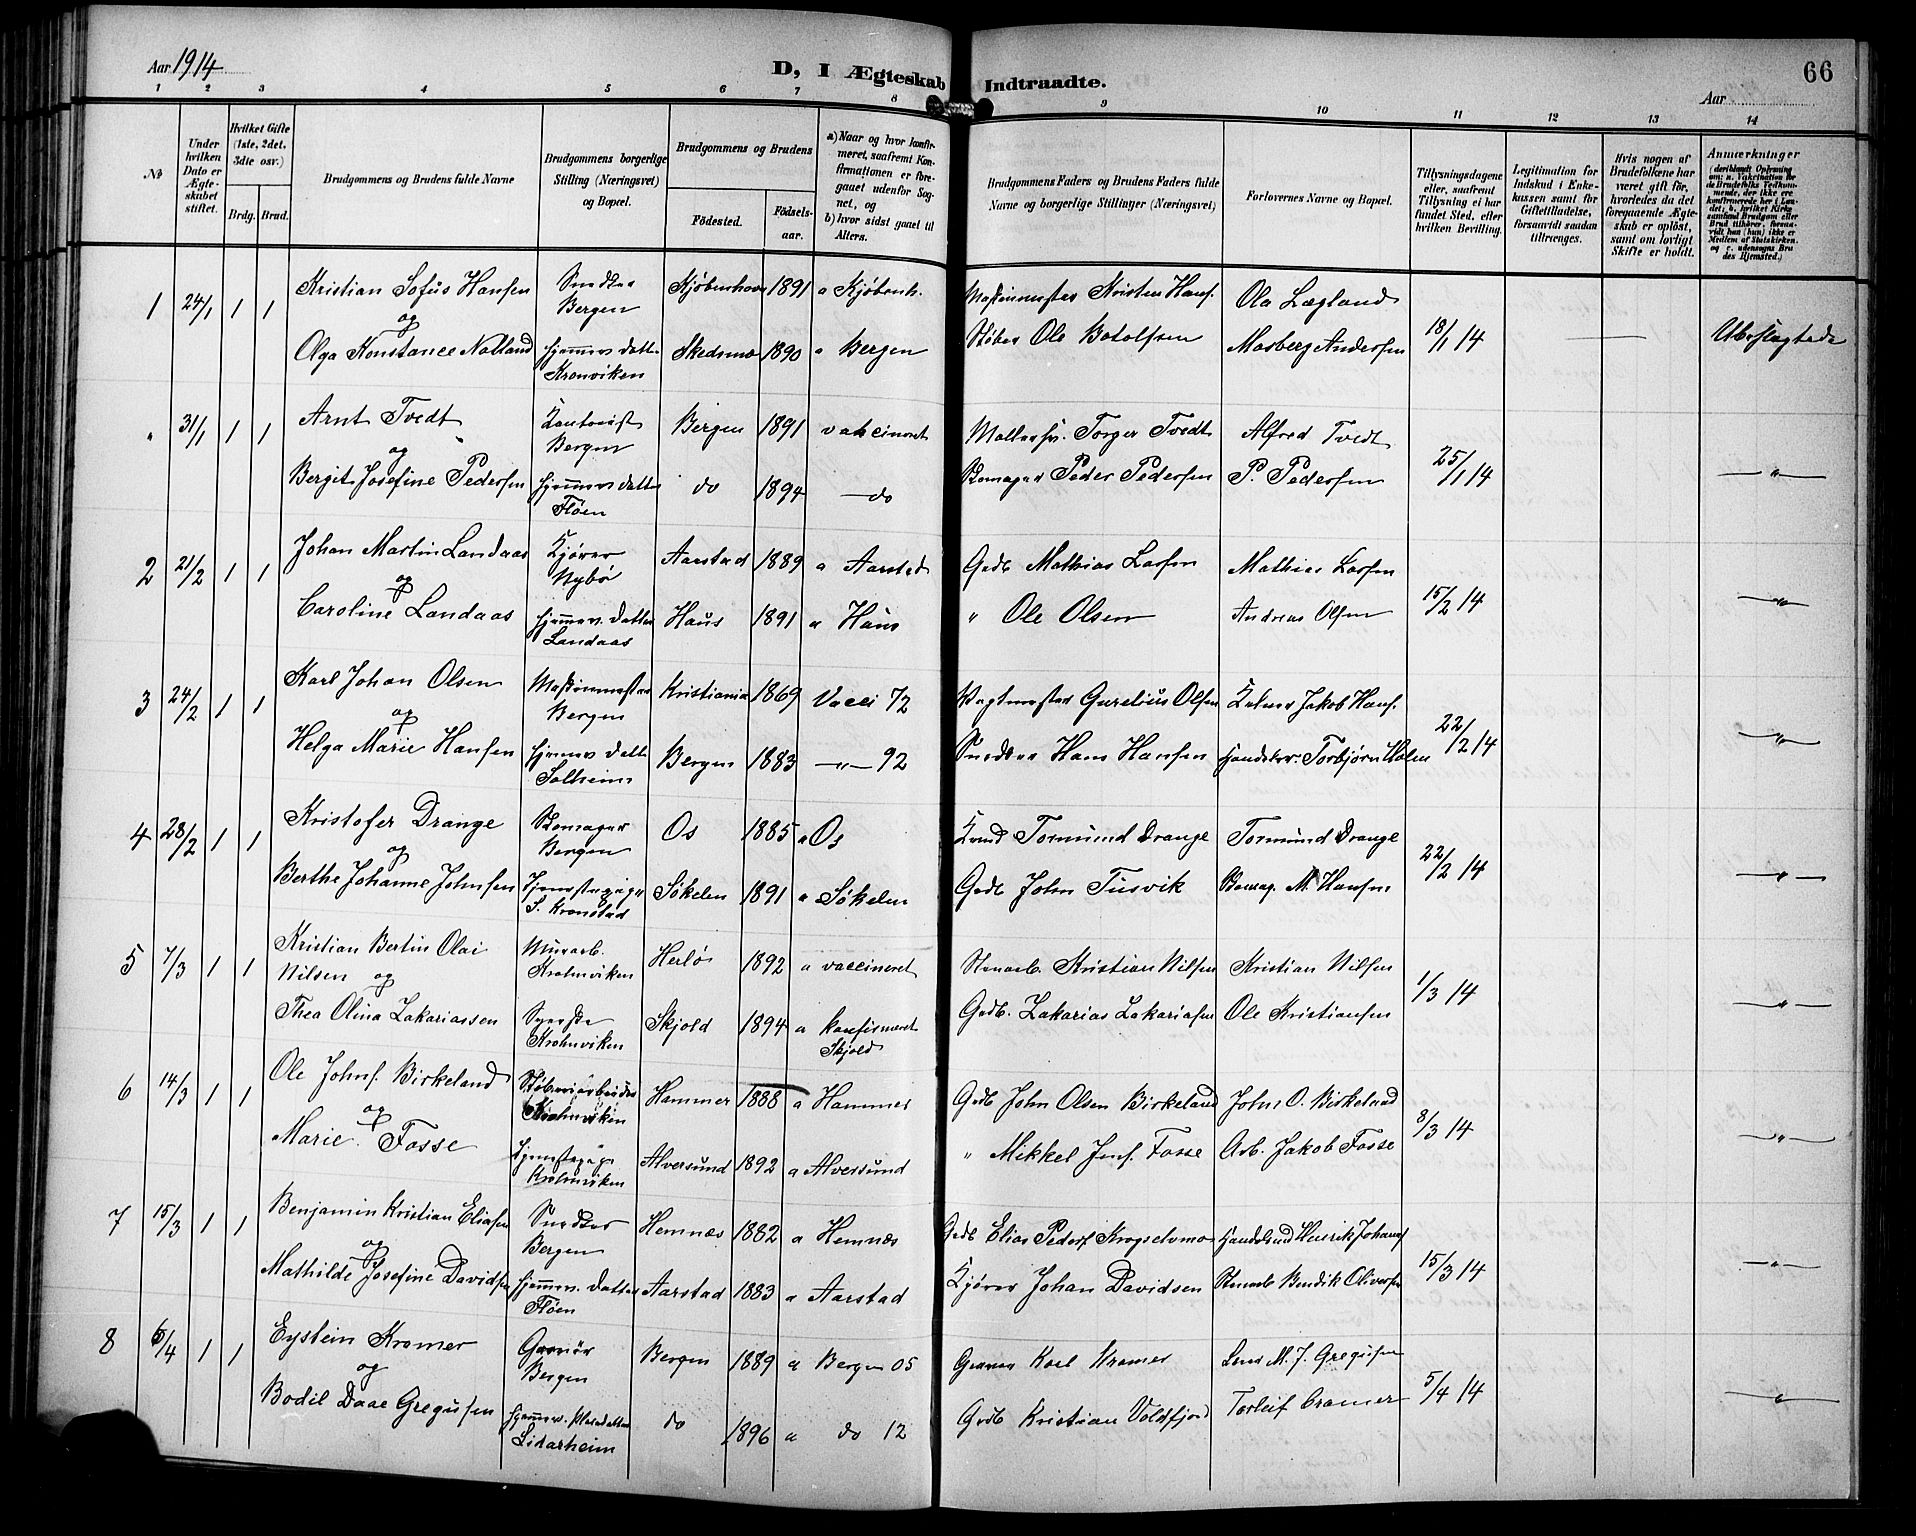 Aar 1914
D, I Ægteskab Indtraadte.
66
Aar
1 2 3 4 5 6 7 8 9 10 11 12 13 14
№
Under hvilken Dato er Ægteskabet stiftet.
Hvilket Gifte (1ste, 2det, 3die osv.)
Brdg. Brud.
Brudgommens og Brudens fulde Navne
Brudgommens borgerlige Stilling (Næringsvei) og Bopæl.
Brudgommens og Brudens
Födested. Födselsaar.
a) Naar og hvor konfirmeret, saafremt Konfirmationen er foregaaet udenfor Sognet, og
b) hvor sidst gaaet til Alters.
Brudgommens Faders og Brudens Faders fulde Navne og borgerlige Stillinger (Næringsvei)
Forlovernes Navne og Bopæl.
Tillysningsdagene eller, saafremt Tillysning ei har fundet Sted, efter hvilken Bevilling.
Legitimation for Indskud i Enkekassen samt for Giftetilladelse, forsaavidt saadan tiltrænges.
Hvis nogen af Brudefolkene har været gift før, hvorledes da det foregaaende Ægteskab er oplöst, samt om lovligt Skifte er holdt.
Anmærkninger
1 24/1 1 1 Kristian Sofus Hansen Snedker Bergen Kjøbenhavn 1891 a Kjøbenh. Maskinmester Kristen Hans. Ola Lægland 18/1 14 — Ubeslægtede
og
Olga Konstance Natland hjemmev. datter Kronviken Skedsmo 1890 a Bergen Støber Ole Botolfsen Mosberg Andersen
" 31/1 1 1 Arnt Tvedt Kontorist Bergen Bergen 1891 vakcineret Torger Tvedt Alfred Tvedt 25/1 14 — " —
og
Bergit Josefine Pedersen hjemmev datter Fløen do 1894 — do Skomager Peder Pedersen P. Pedersen
2 21/2 1 1 Johan Martin Landaas Kjører Nybø Aarstad 1889 a Aarstad Gdb Mathias Larsen Mathias Larsen 15/2 14 — " —
og
Caroline Landaas hjemmev. datter Landaas Haus 1891 a Haus " Ole Olsen Andreas Olsen
3 24/2 1 1 Karl Johan Olsen Maskinmester Bergen Kristiania 1869 Vacci 72 Vagtmester Gurelius Olsen Kelner Jakob Hans. 22/2 14 — " —
og
Helga Marie Hansen hjemmev datter Solheim Bergen 1883 — " — 92 Snedker Hans Hansen Handelsr. Torbjørn Holm
4 28/2 1 1 Kristofer Drange Skomager Bergen Os 1885 a Os Tormund Drange Tormund Drange 22/2 14 — " —
og
Berthe Johanne Johnsen Tjenestepige S. Kronstad Søkelen 1891 a Søkelen Gdb John Tusvik Skomag. M. Hansen
5 7/3 1 1 Kristian Bertin Olai Murarb. Krohnviken Herlø 1892 a vaccineret Stenarb. Kristian Nilsen Kristian Nilsen 1/3 14 — " —
Nilsen og
Thea Olina Zakariassen Krohnviken Skjold 1894 a konfirmeret Skjold Gdb. Zakarias Zakariasen Ole Kristiansen
6 14/3 1 1 Ole Johns. Birkeland Støberiarbeider Krohnviken Hammer 1888 a Hammer Gdb John Olsen Birkeland John O. Birkeland 8/3 14 — " —
og
Marie Fosse Tjenestepige Krohnviken Alversund 1892 a Alversund " Mikkel Jens. Fosse Arb. Jakob Fosse
7 15/3 1 1 Benjamin Kristian Eliasen Snedker Bergen Hemnæs 1882 a Hemnæs Gdb Elias Peders. Krogselvmo Henrik Johans. 15/3 14 — " —
og
Mathilde Josefine Davidsen hjemmev. datter Fløen Aarstad 1883 a Aarstad Kjører Johan Davidsen Stenarb Bendik Oliversen
8 5/4 1 1 Eystein Kromer Gravør Bergen Bergen 1889 a Bergen 05 Gravør Karl Kromer M. J. Gregusen 5/4 14 — " —
og
Bodil Daae Gregusen hjemmev. Pleiedatter Lidarheim do 1896 a do 12 Gdb Kristian Voldfjord Torleif Cramer